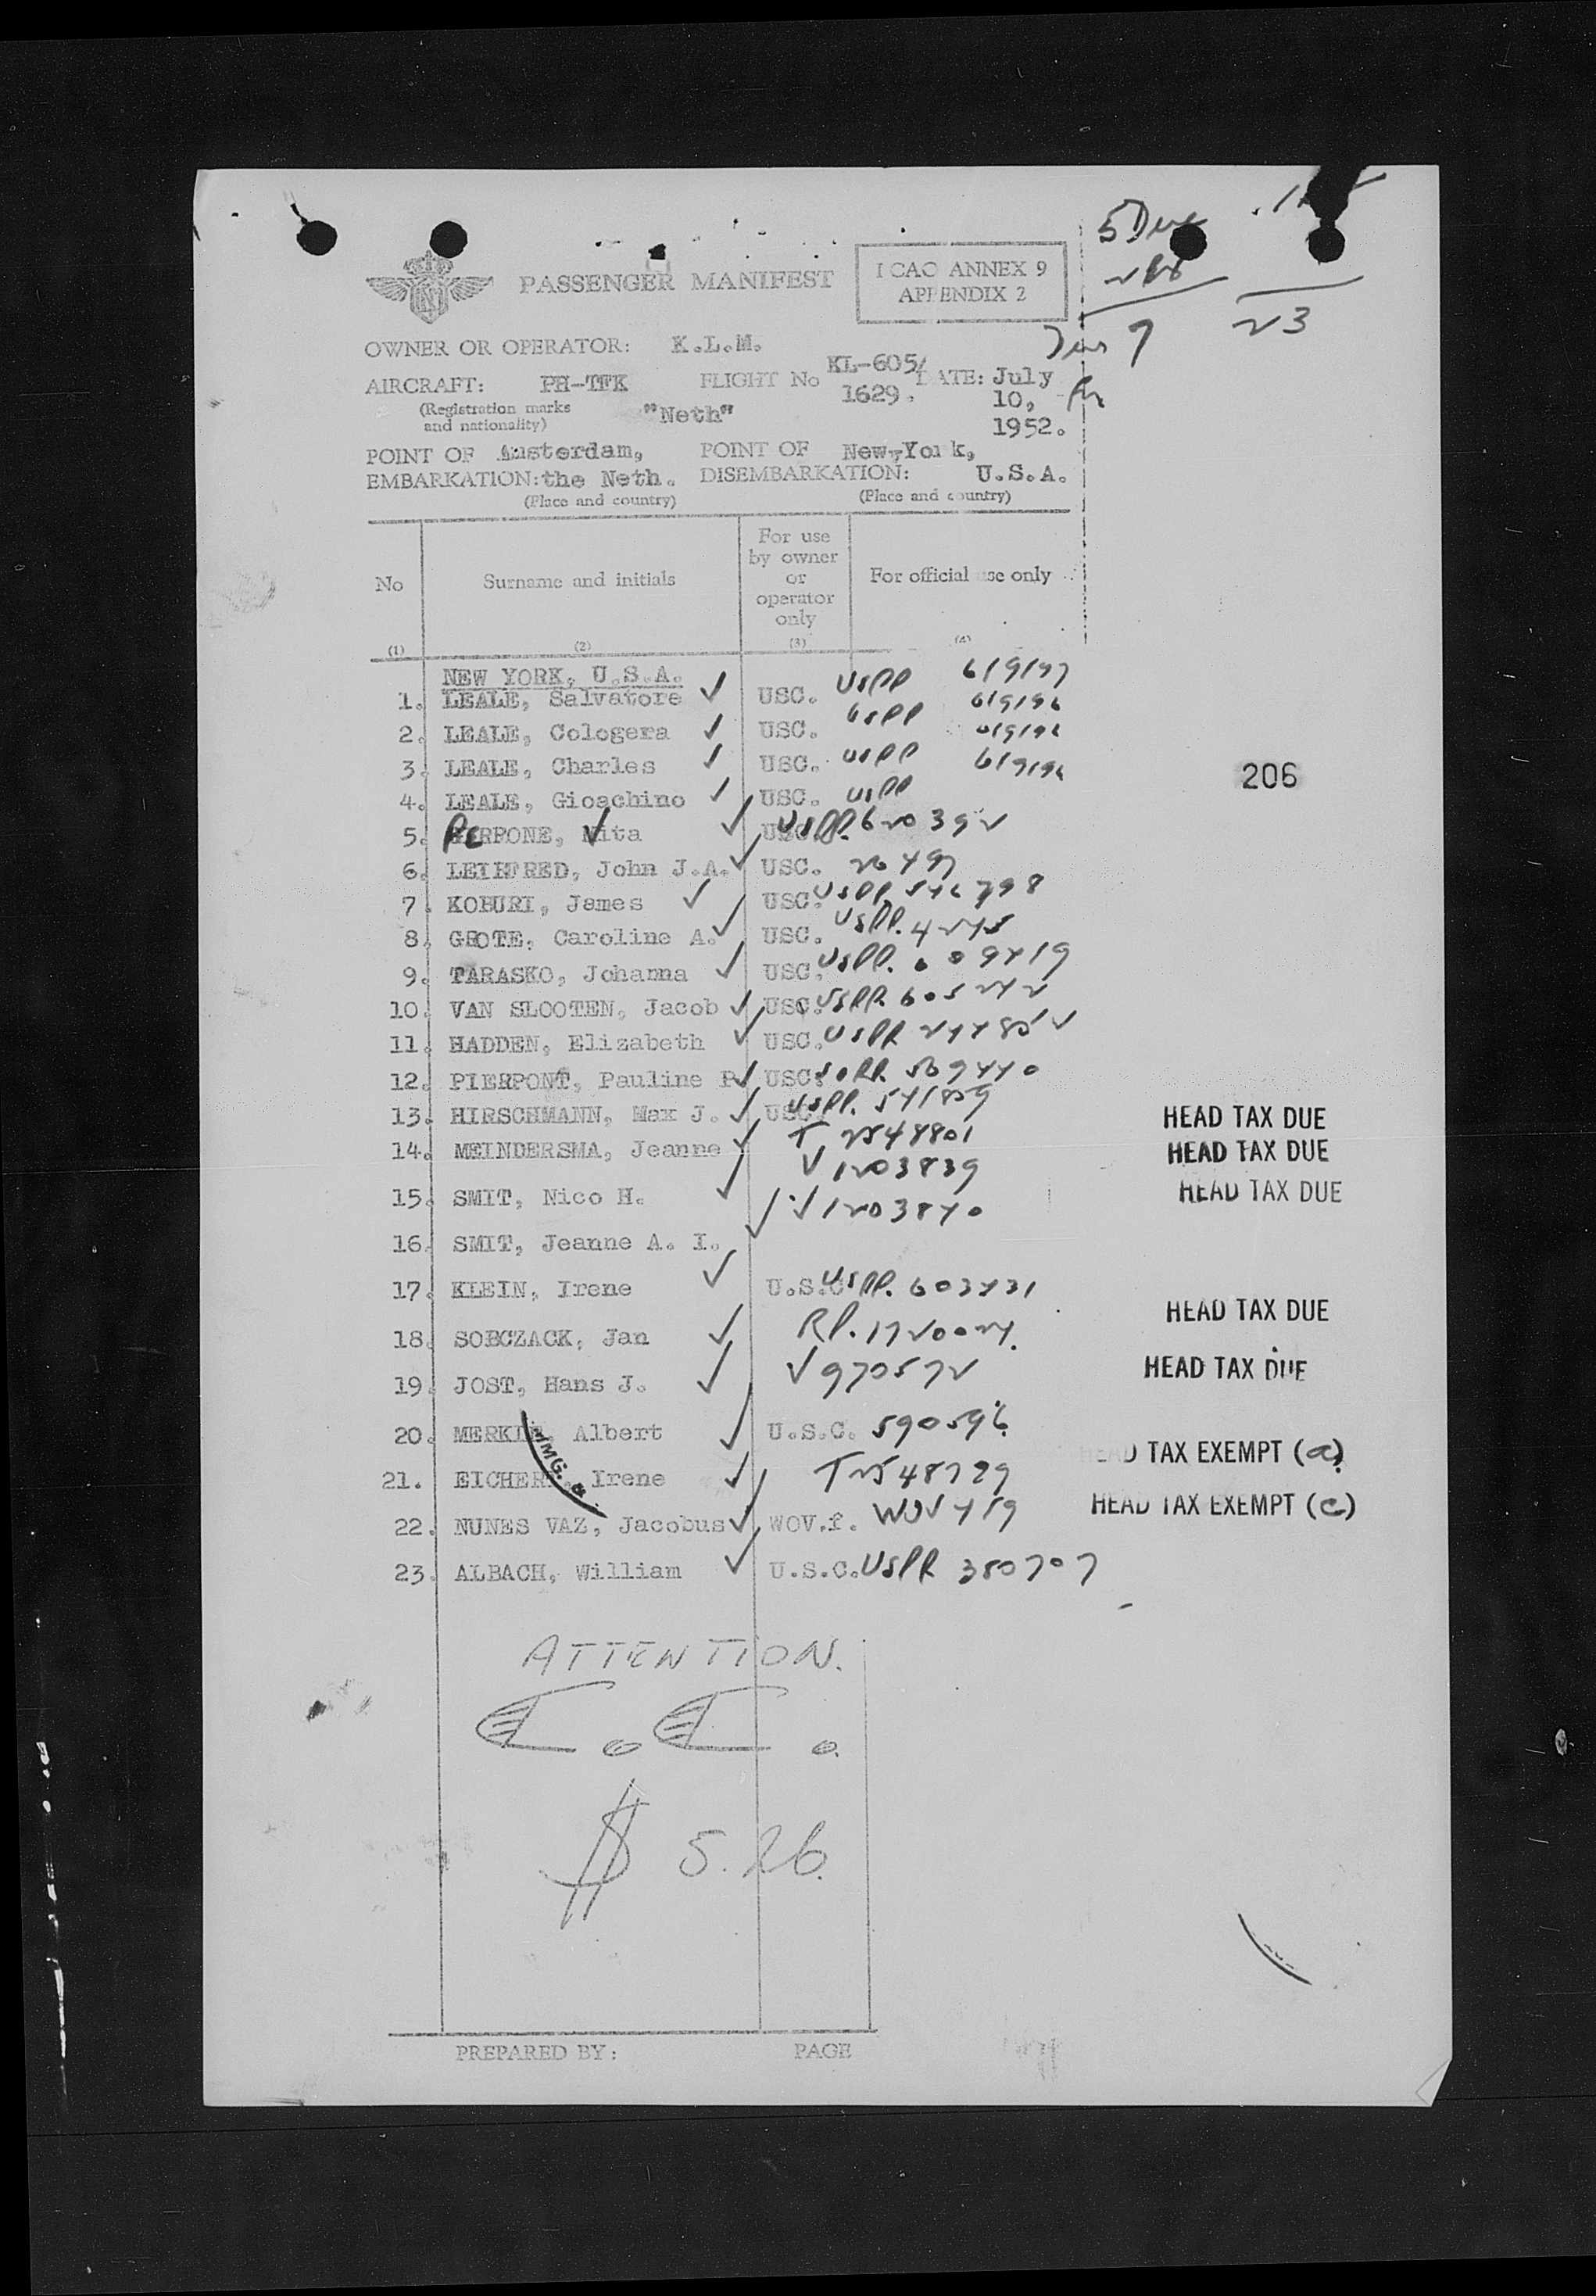 PASSENGER MANIFEST
ICAO ANNEX 9
APPENDIX 2
5 Due
23
7
OWNER OR OPERATOR: K.L.M.
AIRCRAFT: PH-TFK FLIGHT No KL-605/ 1629. DATE: July 10, 1952.
(Registration marks and nationality) "Neth"
POINT OF EMBARKATION: Amsterdam, the Neth. POINT OF DISEMBARKATION: New-York, U.S.A.
(Place and country) (Place and country)
No Surname and initials For use by owner or operator only For official use only
(1) (2) (3) (4)
NEW YORK, U.S.A.
1. LEALE, Salvatore USC. USPP
2. LEALE, Cologera USC. USPP
3. LEALE, Charles USC. USPP
4. LEALE, Gioachino USC. USPP
206
5. PERRONE, Vita USPP. 620392
6. LEIHTRED, John J.A. USC.
7. KOBURI, James USC. USPP.
8. GROTE, Caroline A. USC. USPP.
9. TARASKO, Johanna USC. USPP.
10. VAN SLOOTEN, Jacob USC. USPP. 605242
11. HADDEN, Elizabeth USC. USPP
12. PIERPONT, Pauline P. USC. 569440
13. HIRSCHMANN, Max J. USC. USPP. 541859 HEAD TAX DUE
14. MEINDERSMA, Jeanne T 2548801 HEAD TAX DUE
15. SMIT, Nico H. V 1203839 HEAD TAX DUE
16. SMIT, Jeanne A. I. V 1203840
17. KLEIN, Irene U.S.C. USPP. 603431
18. SOBCZACK, Jan RP. 1720024. HEAD TAX DUE
19. JOST, Hans J. V 970572 HEAD TAX DUE
20. MERKIN, Albert U.S.C. 590596
21. EICHER, Irene T2548729 HEAD TAX EXEMPT (a)
22. NUNES VAZ, Jacobus WOV.f. WOV 419 HEAD TAX EXEMPT (c)
23. ALBACH, William U.S.C. USPP. 380707
IMMG.
ATTENTION.
$ 5.26
PREPARED BY: PAGE